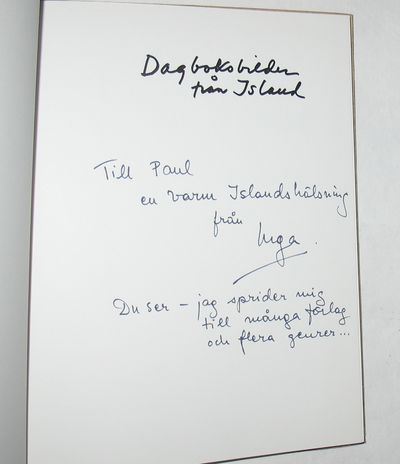 Dagboksbilder
från Island
Till Paul
en varm Islandshälsning
från
Inga.
Du ser – jag sprider mig
till många förlag
och flera genrer...